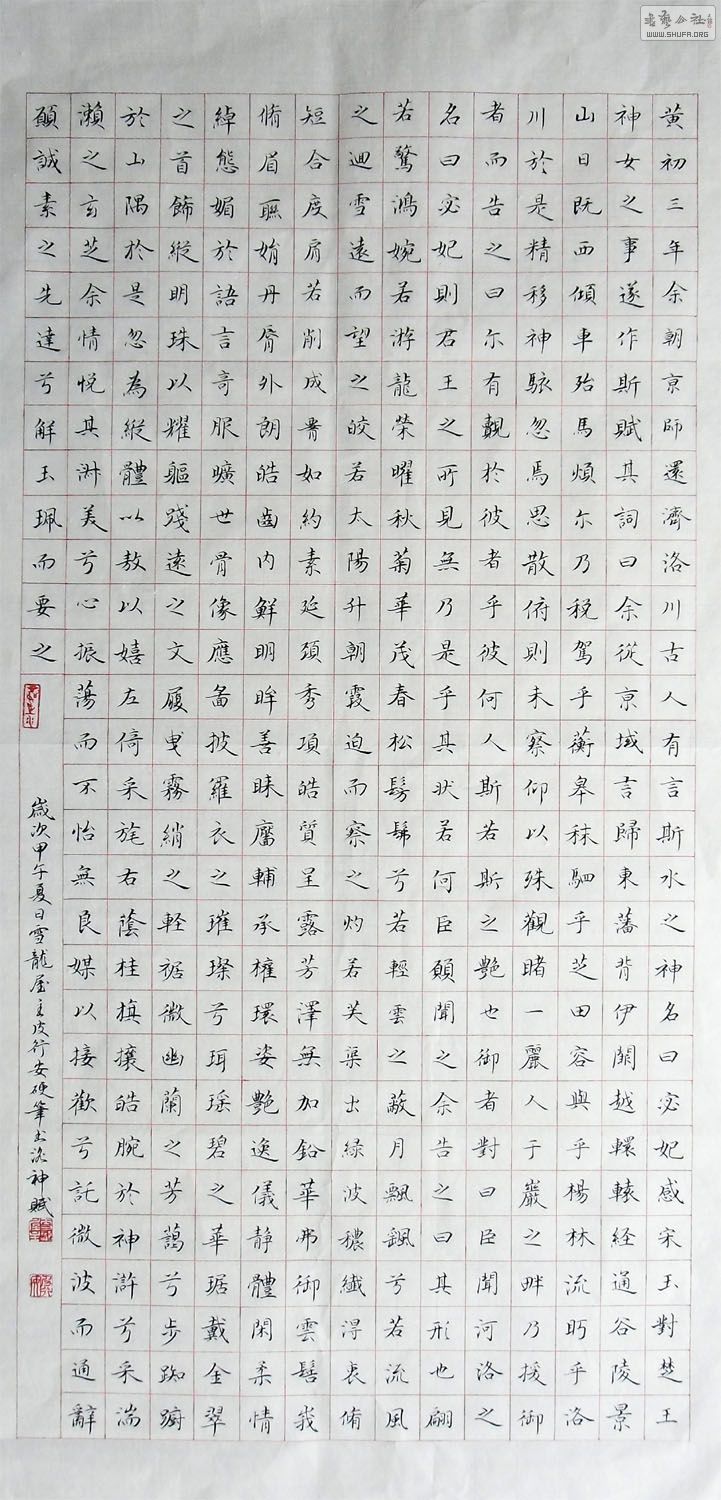 黄初三年余朝京師還濟洛川古人有言斯水之神名曰宓妃感宋玉對楚王
神女之事遂作斯賦其詞曰余從京域言歸東藩背伊闕越轘轅経通谷陵景
山日既西傾車殆馬煩尓乃税駕乎蘅皋秣駟乎芝田容與乎楊林流眄乎洛
川於是精移神駭忽焉思散俯則未察仰以殊觀睹一麗人于巖之畔乃援御
者而告之曰尓有覿於彼者乎彼何人斯若斯之艷也御者對曰臣聞河洛之
名曰宓妃則君王之所見無乃是乎其狀若何臣願聞之余告之曰其形也翩
若驚鴻婉若游龍榮曜秋菊華茂春松髣髴兮若輕雲之蔽月飄飖兮若流風
之迴雪遠而望之皎若太陽升朝霞迫而察之灼若芙渠出緑波穠纖得衷脩
短合度肩若削成腰如約素延頸秀項皓質呈露芳澤無加鉛華弗御雲髻峩
脩眉聯娟丹脣外朗皓齒内鮮明眸善睞靨輔承權環姿艷逸儀静體閑柔情
綽態媚於語言奇服曠世骨像應圖披羅衣之璀璨兮珥瑶碧之華琚戴金翠
之首飾綴明珠以耀軀踐遠之文履曳霧綃之軽裾微幽蘭之芳藹兮步踟躕
於山隅於是忽為縱體以敖以嬉左倚采旄右蔭桂旗攘皓腕於神滸兮采湍
瀨之玄芝余情悦其淑美兮心振蕩而不怡無良媒以接歡兮託微波而通辭
願誠素之先達兮解玉珮而要之
歲次甲午夏日雪龍屋主皮行安硬筆書洛神賦
WWW.SHUFA.ORG